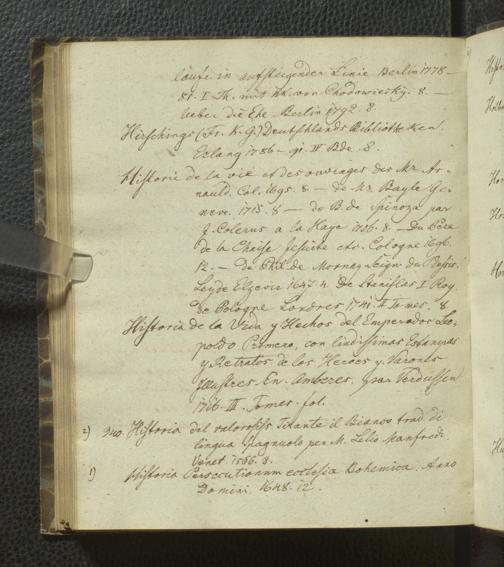 läufe in aufsteigender Linie Berlin 1778–
81. I Th. mit K. von Chodowiecky. 8. –
Ueber die Ehe Berlin 1792. 8.
Hirschings (Fr. K. G.) Deutschlands Bibliotheken.
Erlang 1786– IV Bde. 8.
Historie de la vie et des ouvrages des Mr. Ar-
nauld. Col. 1695. 8 – de Mr. Bayle Ge-
neve. 1715. 8 – de B. de Spinoza par
J. Colerus a la Haye 1706. 8. – Du Pere
de la Chaise Jesuite etc. Cologne 1696.
12. – de Phil. de Mornay Seign. du Plessis.
Leyde Elzevir 1647. 4. De Stanislas I Roy
de Pologne Londres 1741. Tomes. 8
Historia de la Vida y Hechos del Emperador Leo-
poldo Primero, con lindissimas Estampas
y Retratos de los Heroes y Varones
Illustres. En Amberes, par Verdussen
1716. III. Tomes. fol.
2) 940. Historia del valorosiss Tirante il Bianco trad di
lingua Spagnuolo per M. Lelio Manfredi
Venet. 1566. 8.
1) Historia Persecutionum ecclesia Bohemica. Anno
Domini. 1648. 12.